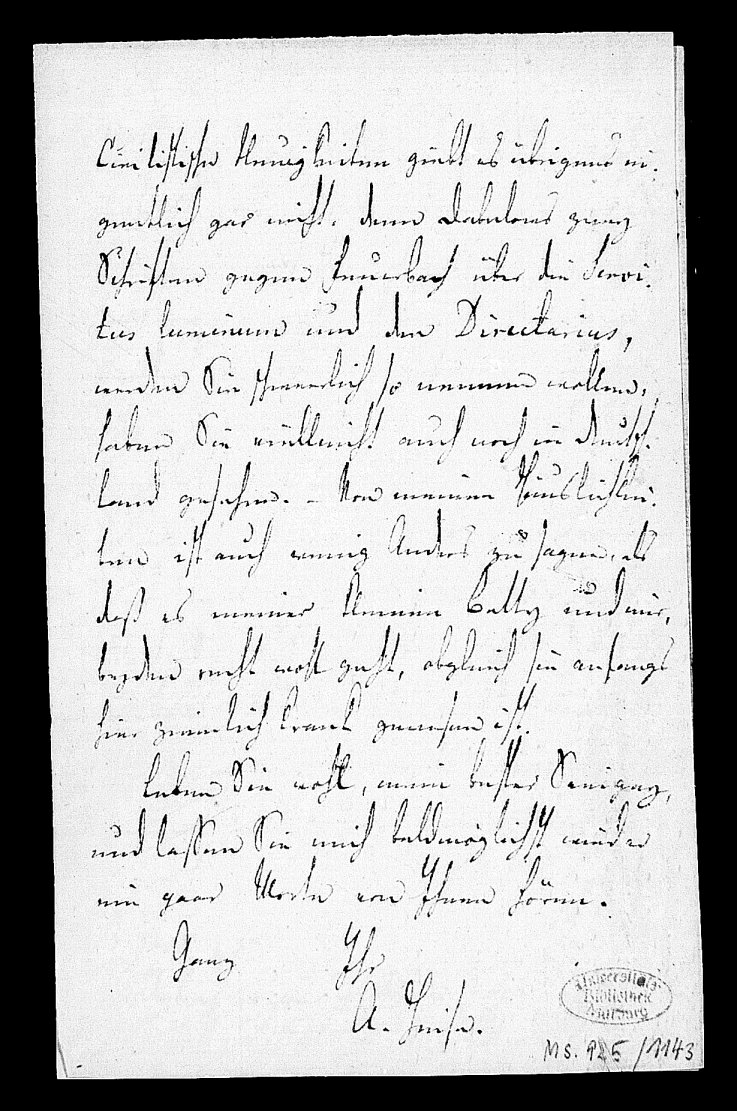 Civilistische Neuigkeiten giebt es übrigens ei-
gentlich gar nicht, denn Dabelows zwey
Schriften gegen Feuerbach über die Servi-
tus luminum und den Directarius,
werden Sie schwerlich so nennen wollen,
haben Sie vielleicht auch noch in Deutsch-
land gesehen. - Von meinen Häuslichkei-
ten ist auch wenig Anders zu sagen, als
daß es meiner kleinen Betty und mir,
beyden recht wohl geht, obgleich sie anfangs
hier ziemlich krank gewesen ist.
Leben Sie wohl, mein bester Savigny,
und lassen Sie mich baldmöglichst wieder
ein paar Worte von Ihnen hören.
Ganz Ihr
A. Heise.
Universitäts-
Bibliothek
Marburg
Ms. 925 / 1143